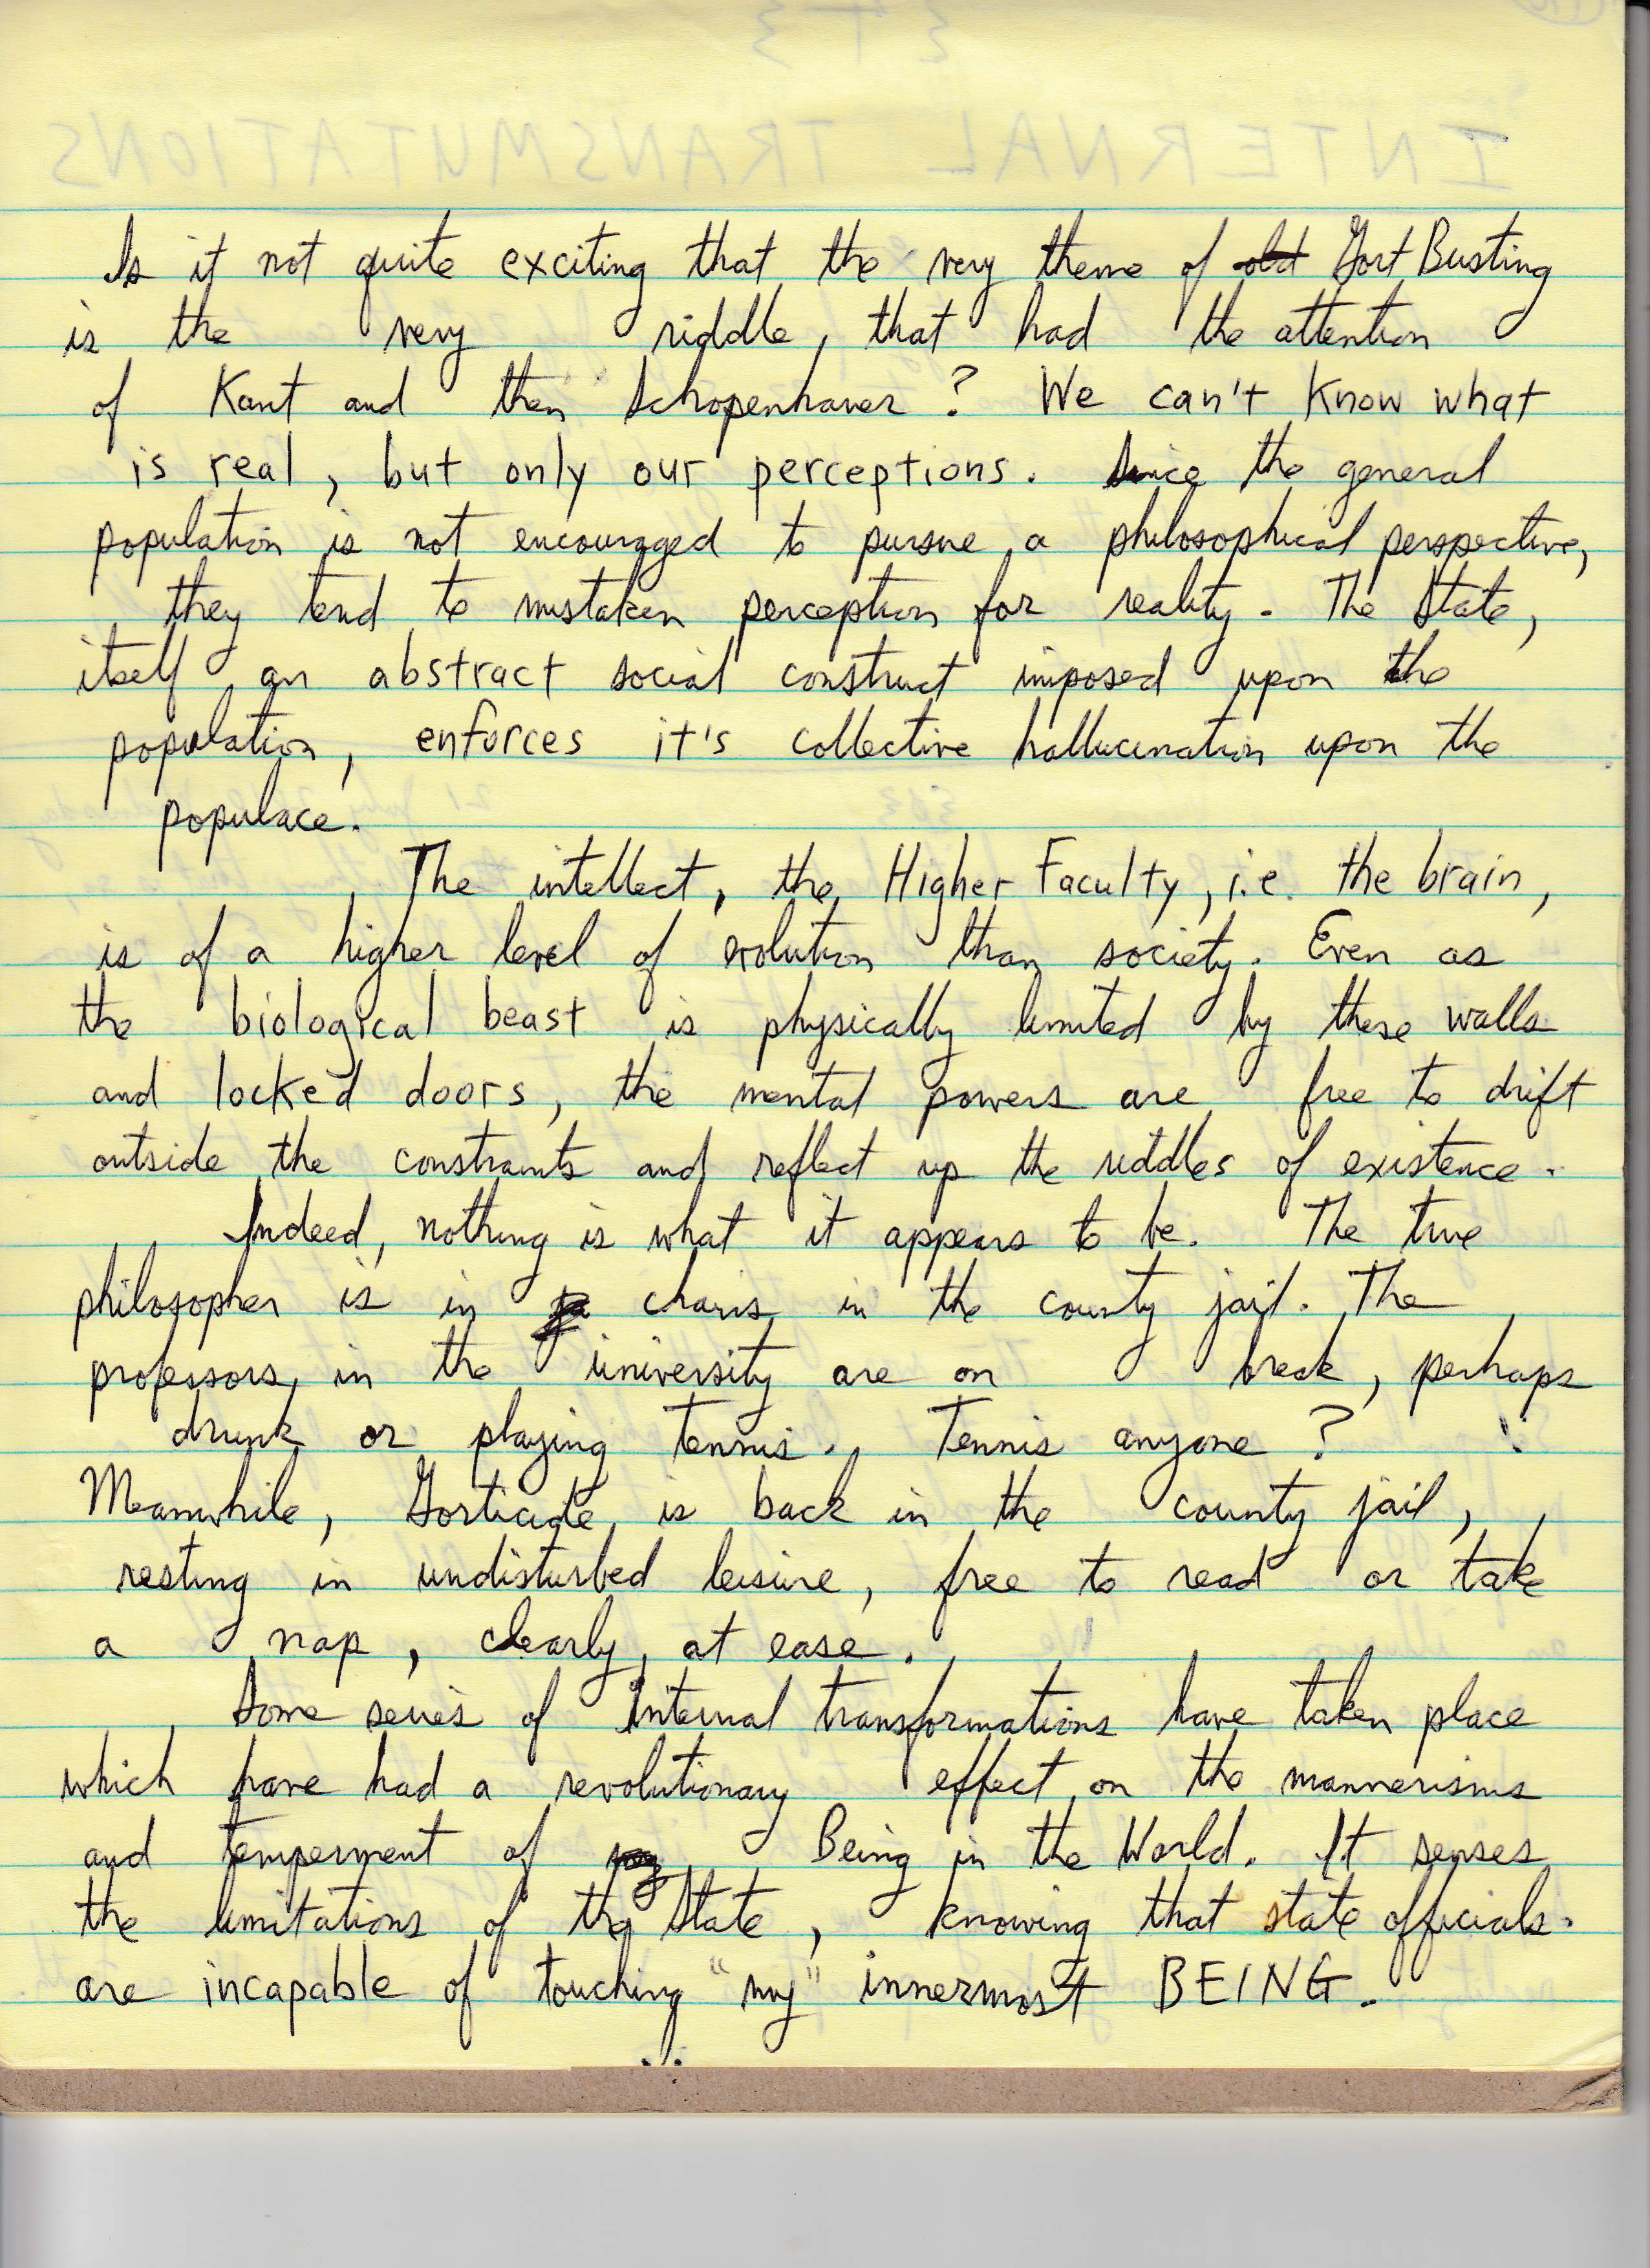 Is it not quite exciting that the very theme of old Gort Busting
is the very riddle, that had the attention
of Kant and then Schopenhauer? We can't know what
is real, but only our perceptions. Since the general
population is not encouraged to pursue a philosophical perspective,
they tend to mistaken perception for reality. The State,
itself an abstract social construct imposed upon the
population, enforces it's collective hallucination upon the
populace.
The intellect, the Higher Faculty, i.e. the brain,
is of a higher level of evolution than society. Even as
the biological beast is physically limited by these walls
and locked doors, the mental powers are free to drift
outside the constraints and reflect up the riddles of existence.
Indeed, nothing is what it appears to be. The true
philosopher is in chains in the county jail. The
professors in the university are on break, perhaps
drunk or playing tennis. Tennis anyone?
Meanwhile, Gorticide is back in the county jail,
resting in undisturbed leisure, free to read or take
a nap, clearly at ease.
Some series of Internal transformations have taken place
which have had a revolutionary effect on the mannerisms
and temperment of Being in the World. It senses
the limitations of the State, knowing that state officials
are incapable of touching "my" innermost BEING.